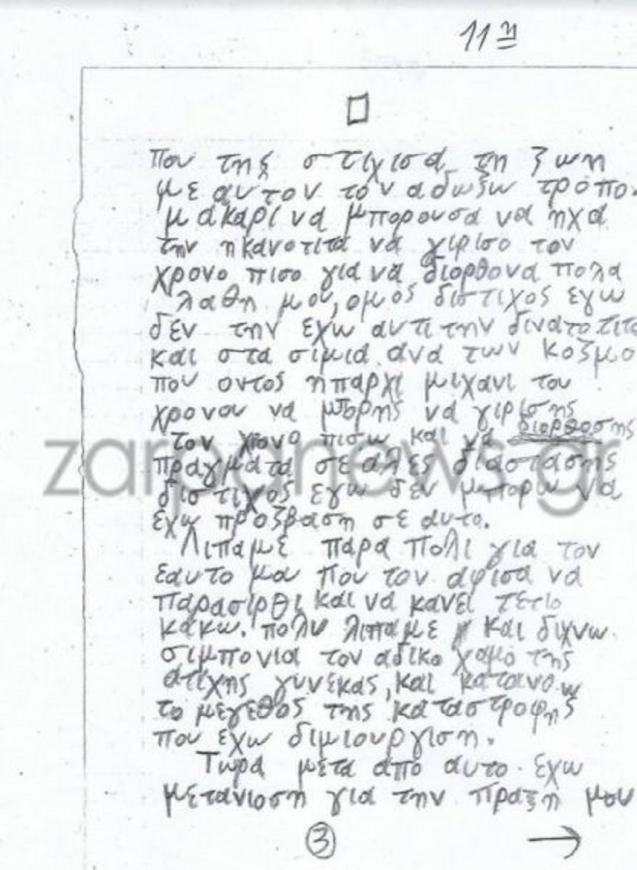 11η
που της στιχισα τη ζωη
με αυτον τον αδωξω τροπο.
μακαρι να μπορουσα να ηχα
την ηκανοτιτα να γιρισο τον
χρονο πισο για να διορθονα πολα
λαθη μου, ομος διστιχος εγω
δεν την εχω αντι την δινατοτιτα
και στα σιμια ανα των κοζμο
που οντος ηπαρχι μιχανι του
χρονου να μπορης να γιρισης
τον χρονο πισω και να διορθοσης
πραγματα σε αλες διαστασης
διστιχος εγω δεν μπορω να
εχω προζβαση σε αυτο.
Λιπαμε παρα πολι για τον
εαυτο μου που τον αφισα να
παρασιρθι και να κανει τετιο
κακω. πολυ λιπαμε και διχνω
σιμπονια τον αδικο χαμο της
ατιχης γυνεκας, και κατανοω
το μεγεθος της καταστροφης
που εχω διμιουργιση.
Τωρα μετα απο αυτο εχω
μετανιοση για την πραξη μου
3
zarpanews.gr